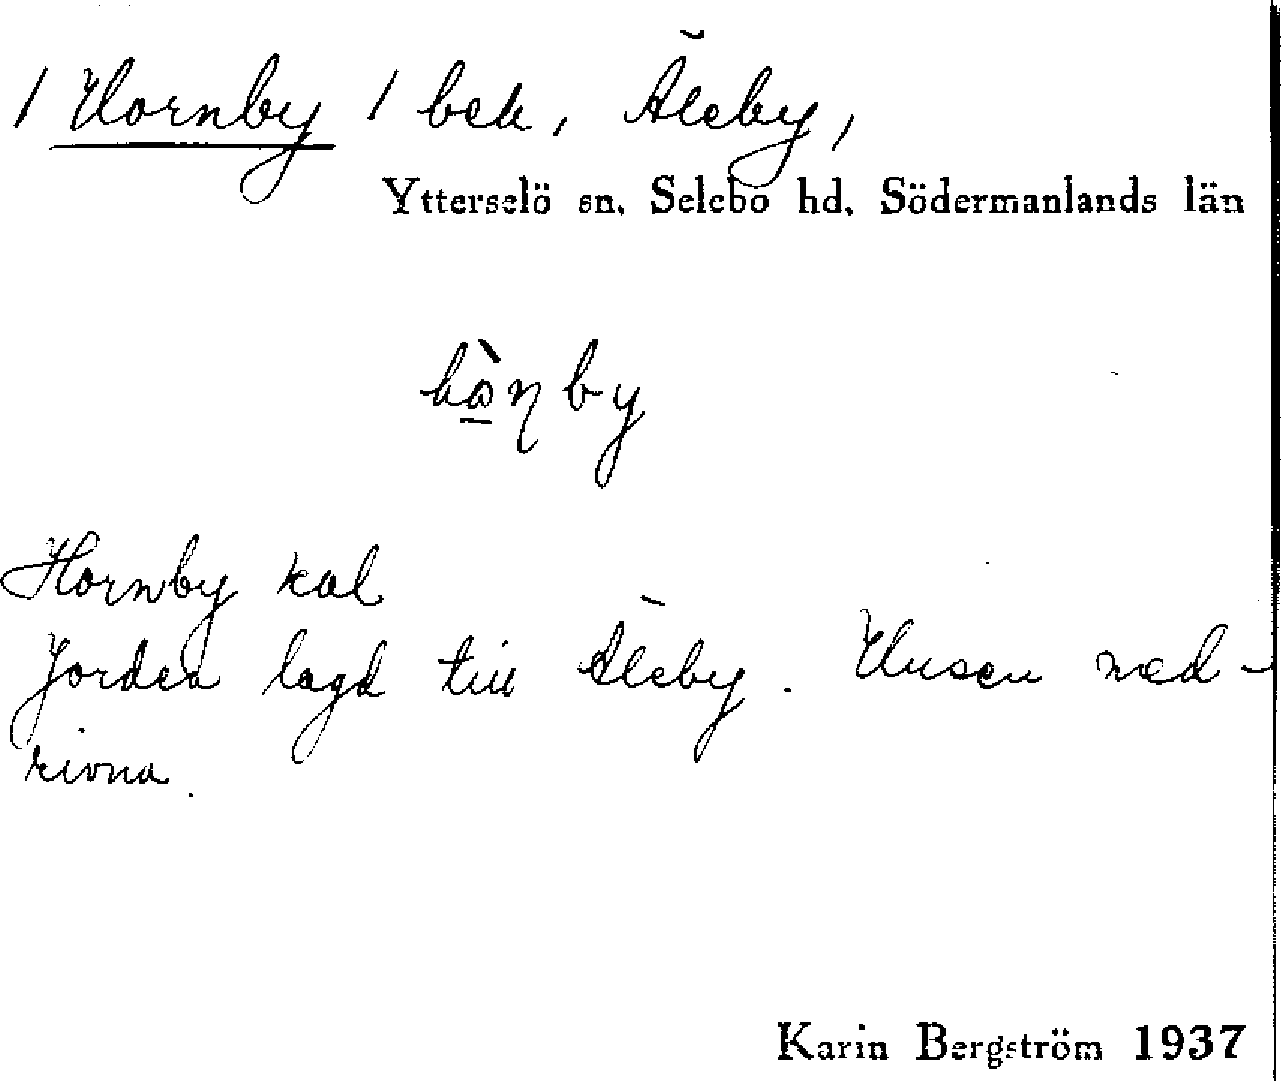 / Hornby / beb, Åleby,
Ytterselö sn. Selebo hd. Södermanlands län
Hornby kal
Jorden lagd till Åleby. Husen ned-
rivna.
Karin Bergström 1937